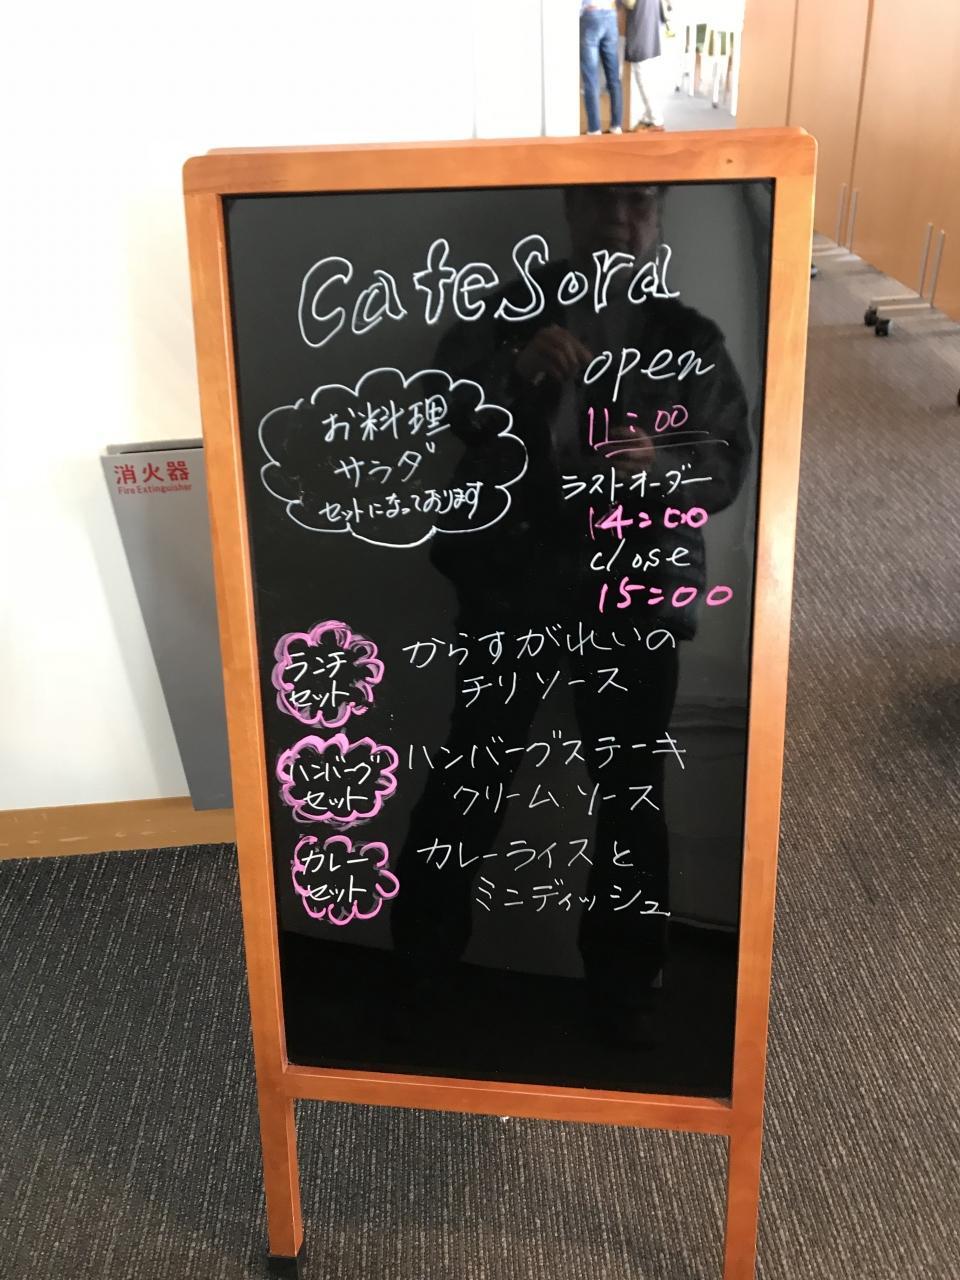 Cafe Sora
open
11:00
お料理
サラダ
セットになっております
ラストオーダー
14:00
close
15:00
消火器
Fire Extinguisher
ランチ
セット
からすがれいの
チリソース
ハンバーグ
セット
ハンバーグステーキ
クリームソース
カレー
セット
カレーライスと
ミニディッシュ